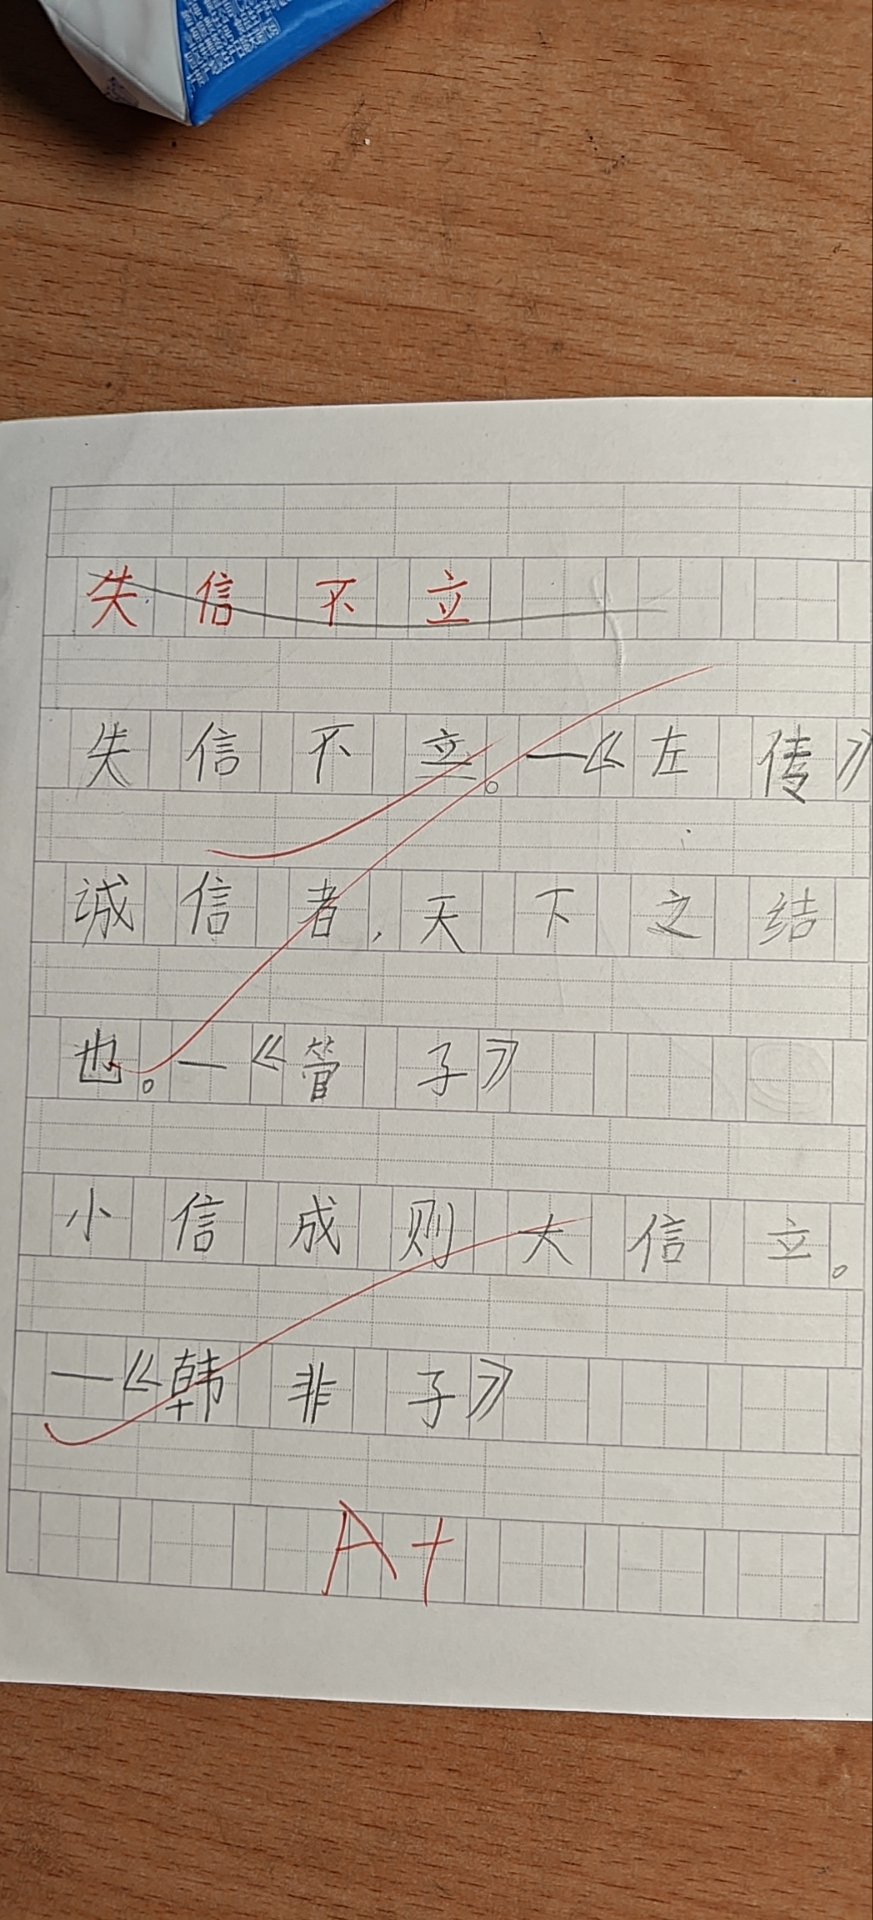 失信不立
失信不立。—《左传》
诚信者,天下之结
也。—《管子》
小信成则大信立。
—《韩非子》
A+